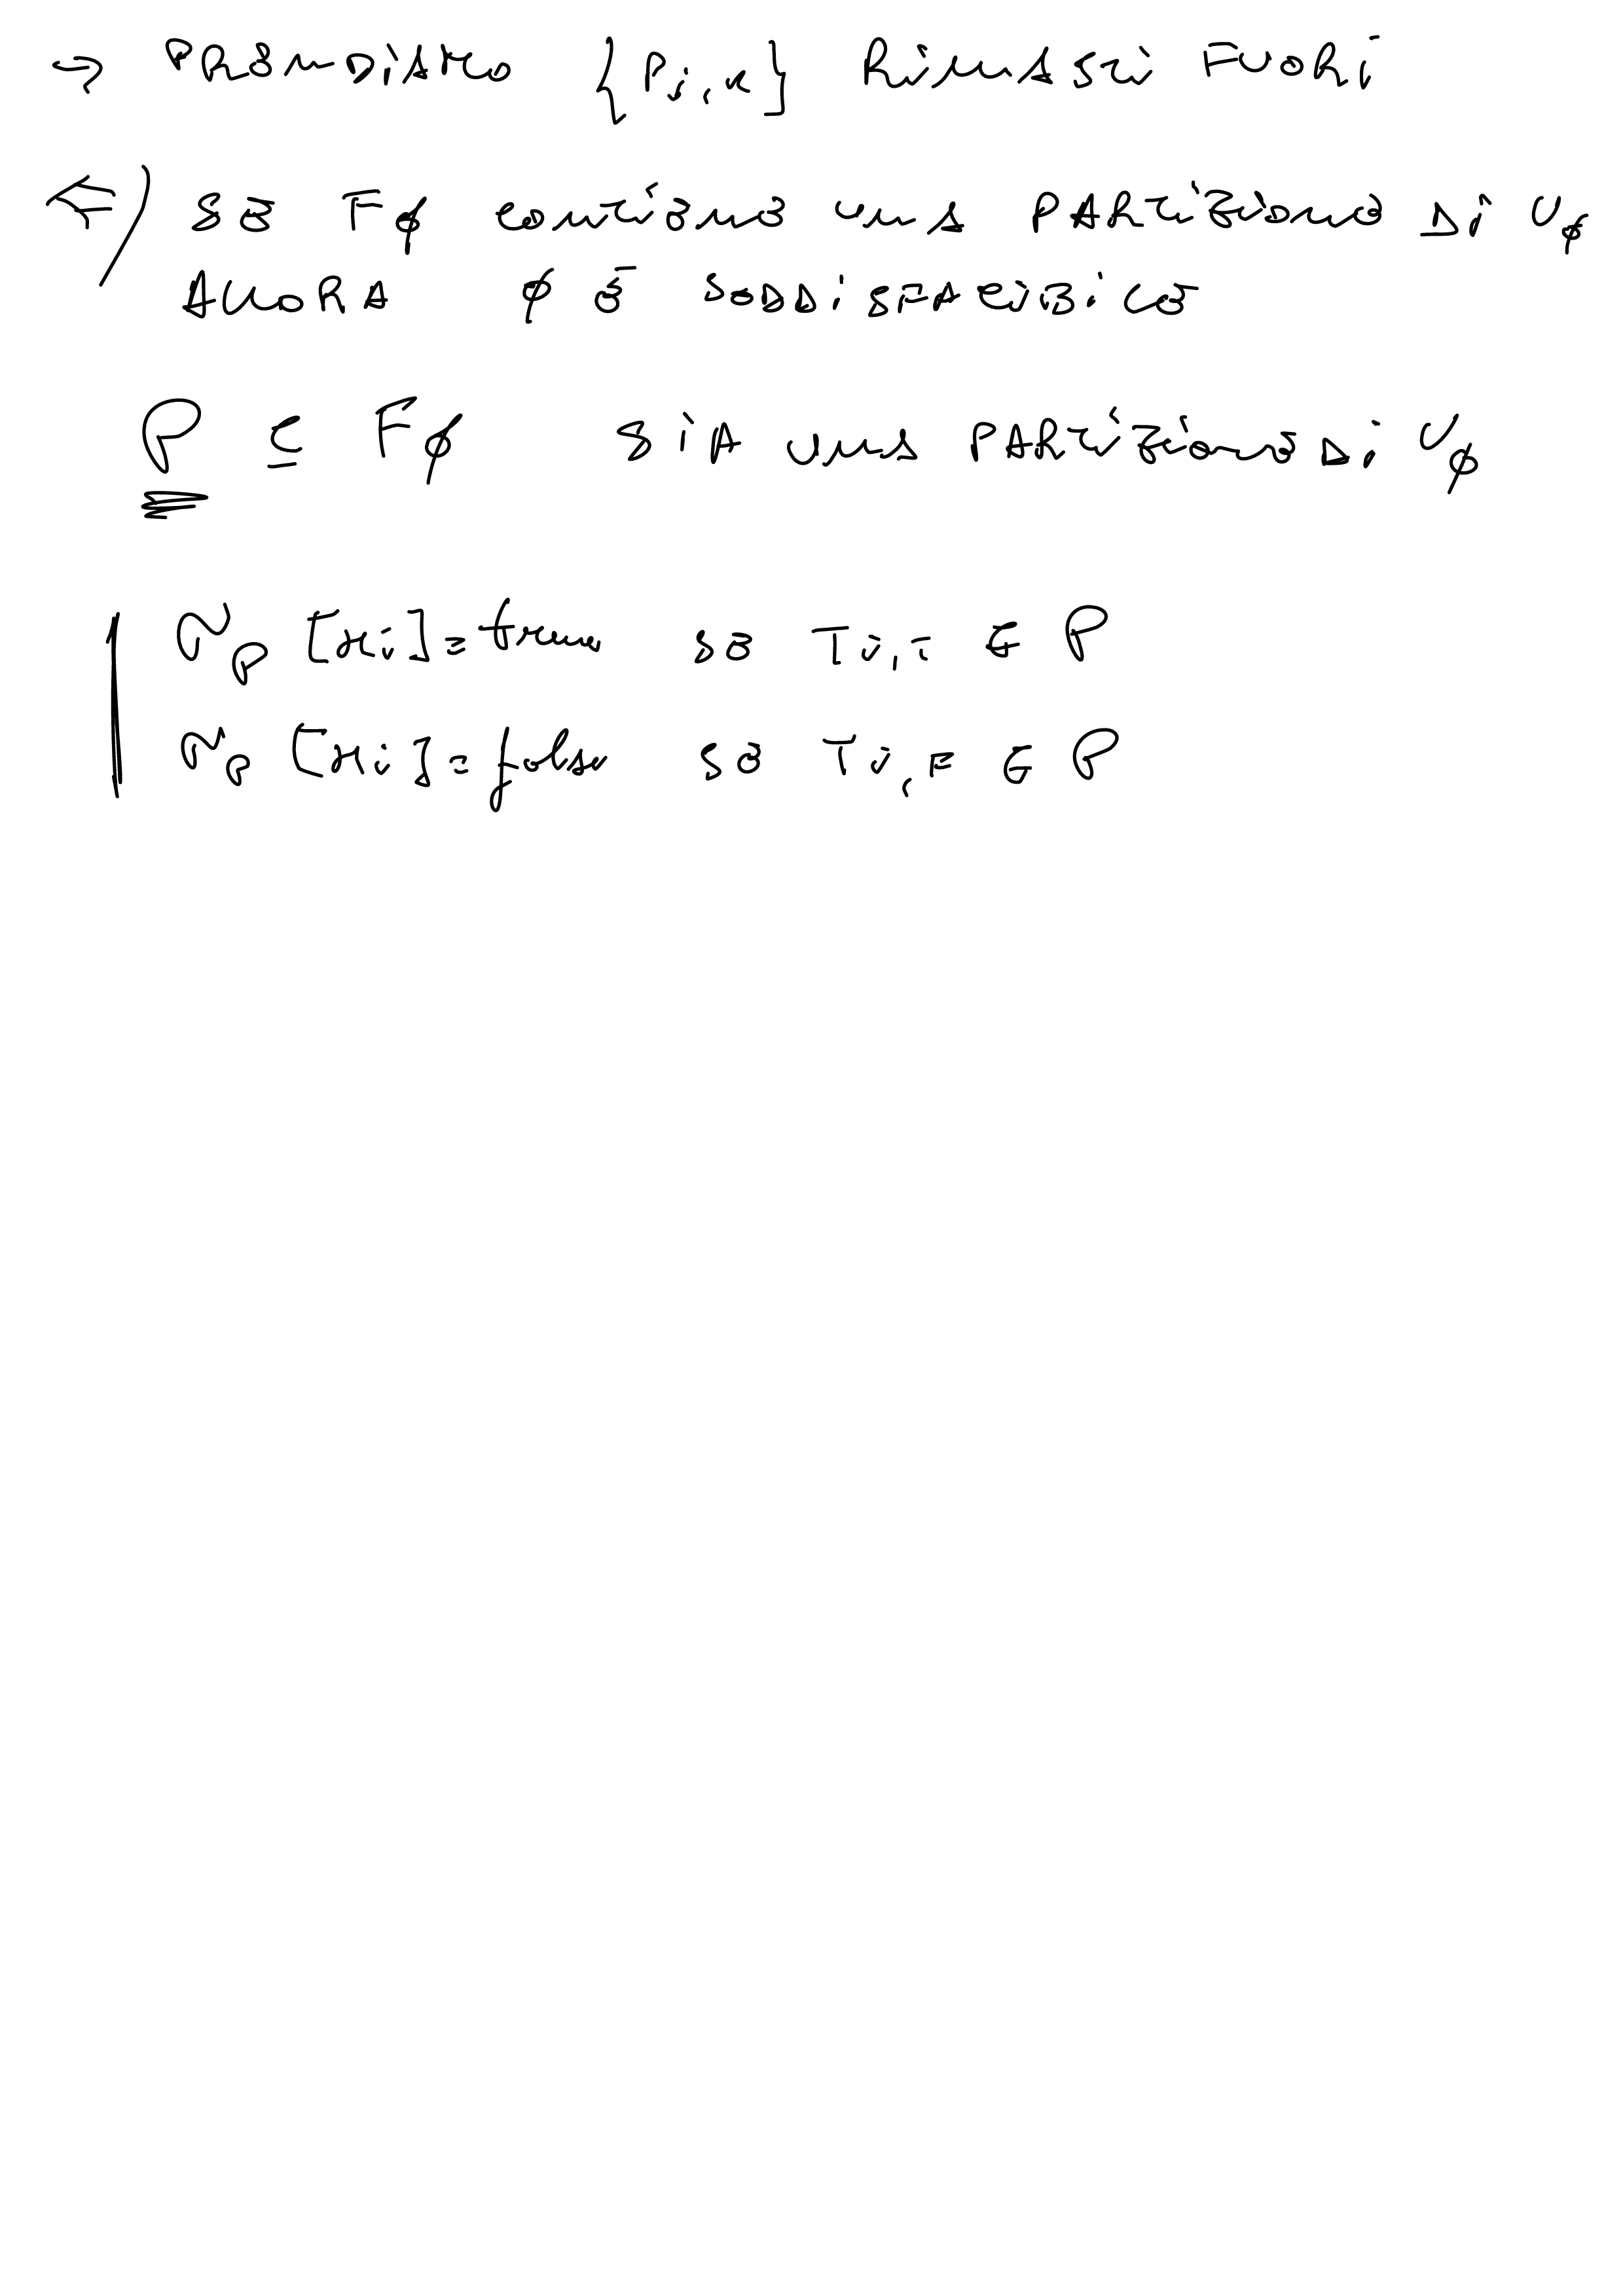 → PRENDIAMO {Pj,k} RIMASTI FUORI
⇐) SE Fϕ CONTIENE UNA PARTIZIONE DI Uϕ
ALLORA ϕ È SODDISFACIBILE
P ⊆ Fϕ SIA UNA PARTIZIONE DI Uϕ
P [xi] = true SE Ti,T ∈ P
P [xi] = false SE Ti,F ∈ P